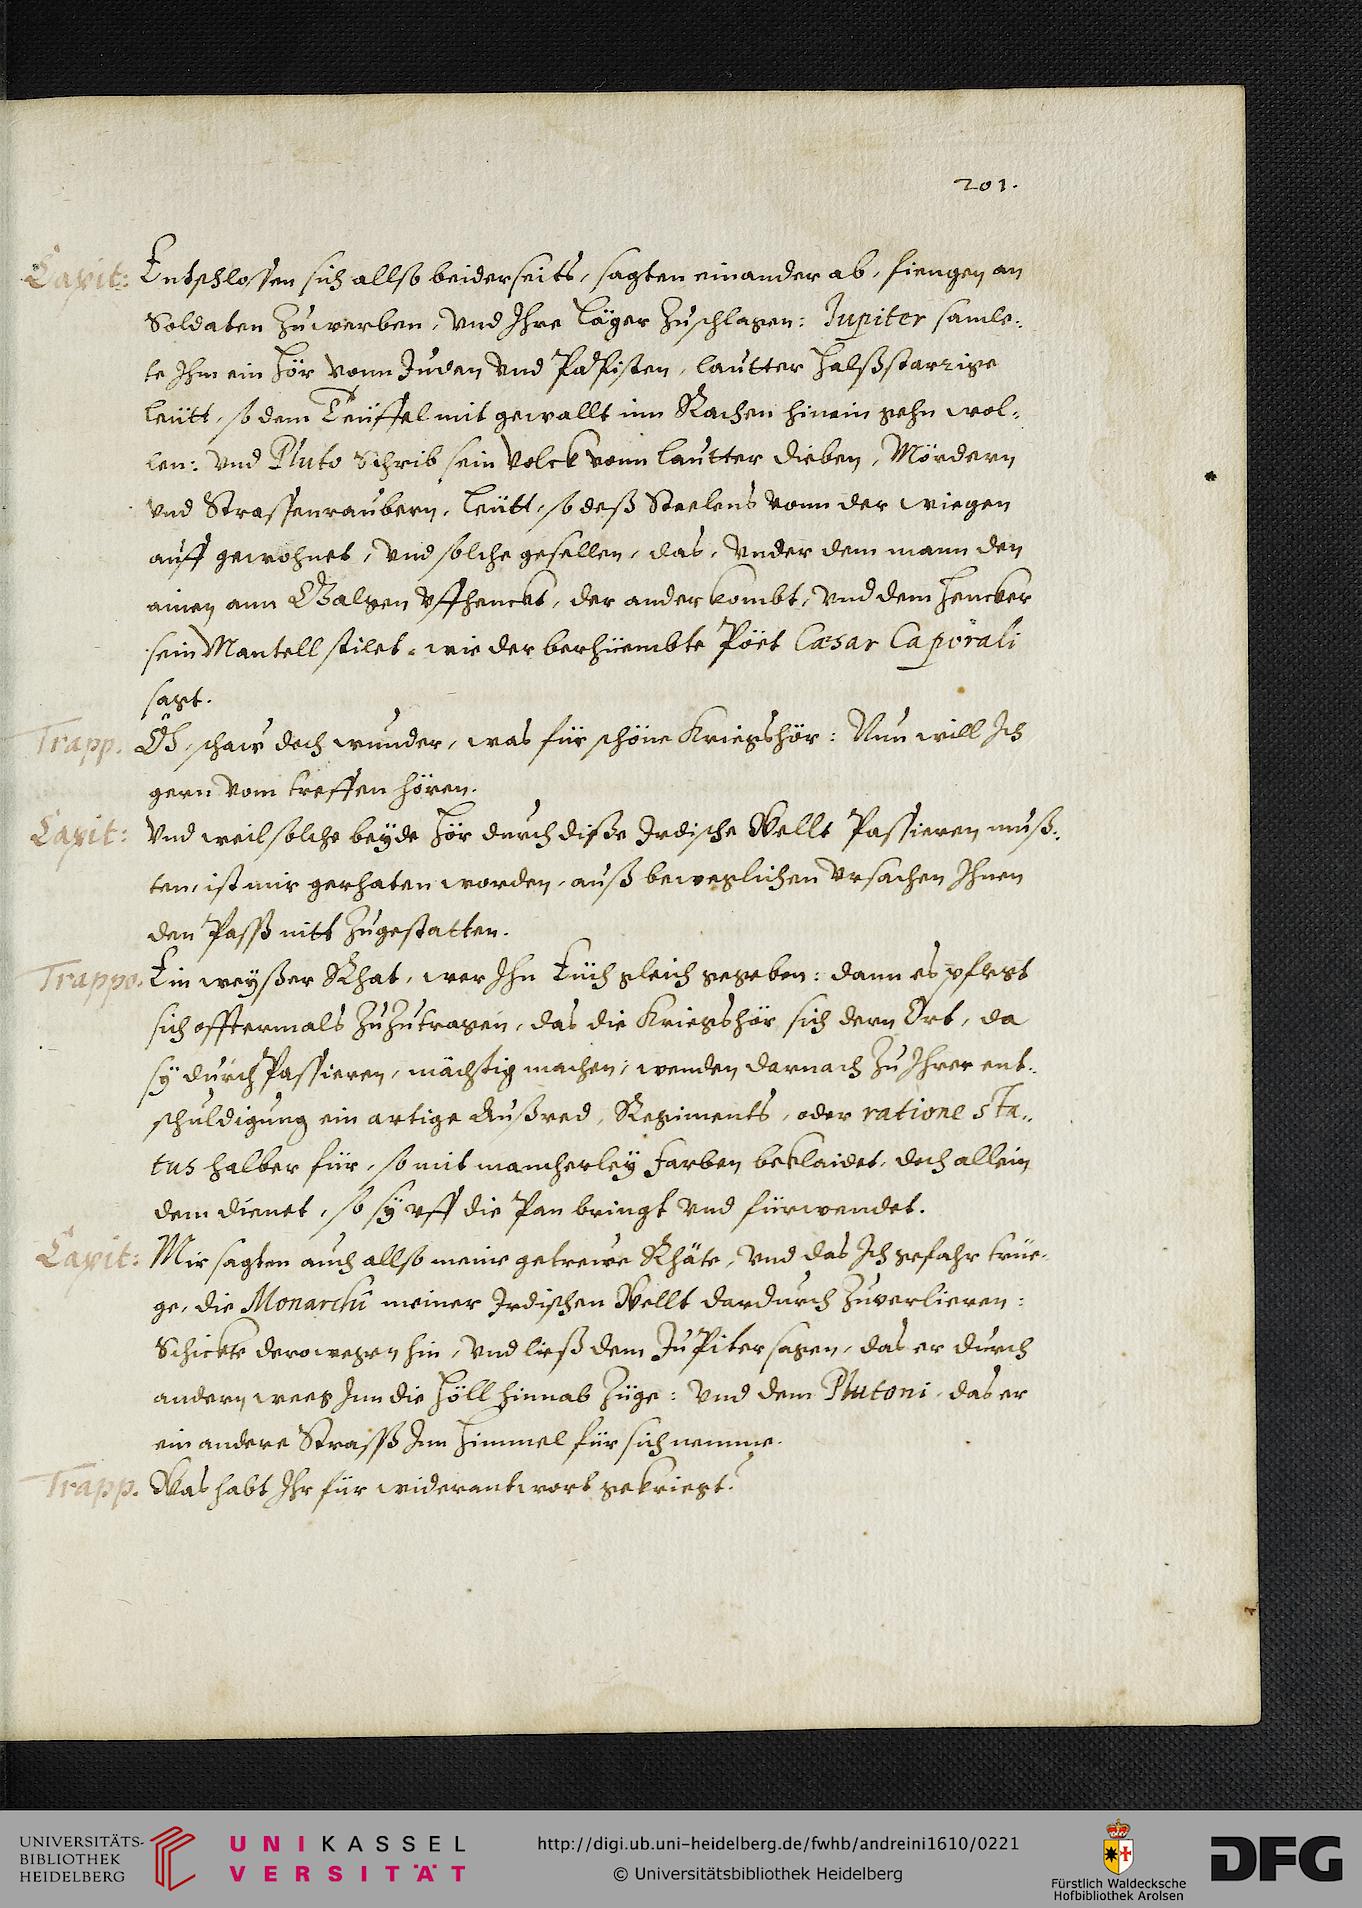 201.
Capit: Entschlossen sich allso beiderseits, sagten einander ab, fiengen an
Soldaten Zuwerben, vnd Ihre Läger Zuschlagen: Iupiter samle:
te Ihm ein Hör vonn Juden vnd Papisten, lautter halßstarrige
leütt, so dem Teüffel mit gewallt inn Rachen hinein gehn wol:
len: vnd Pluto Schrib sein Volck vonn lautter dieben, Mördern
vnd Strassenraubern, leütt, so deß Steelens vonn der wiegen
auff gewohnet, vnd solche gesellen, das, vnder dem mann den
ainen ann Galgen vffhenckt, der ander kombt, vnd dem Hencker
sein Mantell stilet, wie der berhüembte Pöet Cæsar Caporali
sagt.
Trapp. Oh, schaw doch wunder, was für schöne Kriegshör: Nun will Ich
gern vom treffen hören.
Capit: Vnd weil solche beÿde Hör durch diße Irdische Wellt Passieren muß:
ten, ist mir gerhaten worden, auß beweglichen vrsachen Ihnen
den Passß nitt Zugestatten.
Trappo. Ein weÿßer Rhat, wer Ihn Eüch gleich gegeben: dann es pflegt
sich offtermals Zuzutragen, das die Kriegshör sich dern Ort, da
sÿ durch Passieren, mächtig machen, wenden darnach Zu Ihrer ent:
schuldigung ein artige Außred, Regiments, oder ratione sta:
tus halber für, so mit mancherleÿ Farben beklaidet, doch allein
dem dienet, so sÿ vff die Pan bringt vnd fürwendet.
Capit: Mir sagten auch allso meine getrewe Rhäte, vnd das Ich gefahr trüe:
ge, die Monarchi meiner Irdischen Wellt dardurch Zuverlieren:
Schickte derowegen hin, vnd ließ dem Jupiter sagen, das er durch
andern weeg Inn die Höll hinnab Züge: vnd dem Plutoni, das er
ein andere Strassß Inn Himmel für sich nemme.
Trapp. Was habt Ihr für widerantwort gekriegt?
UNIVERSITÄTS-
BIBLIOTHEK
HEIDELBERG
UNIKASSEL
VERSITÄT
http://digi.ub.uni-heidelberg.de/fwhb/andreini1610/0221
© Universitätsbibliothek Heidelberg
Fürstlich Waldecksche
Hofbibliothek Arolsen
DFG